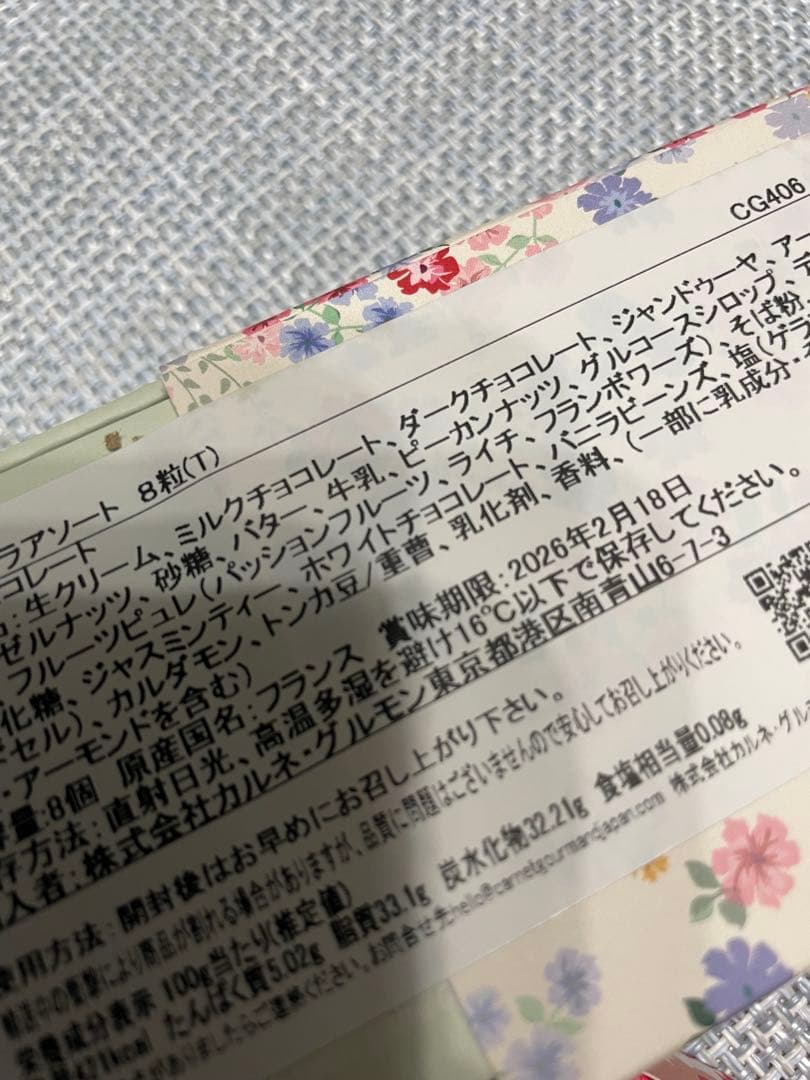 CG406
ラアソート 8粒(T)
コレート
:生クリーム、ミルクチョコレート、ダークチョコレート、ジャンドゥーヤ、アー
ゼルナッツ、砂糖、バター、牛乳、ピーカンナッツ、グルコースシロップ、デ
フルーツピュレ(パッションフルーツ、ライチ、フランボワーズ)、そば粉、
化糖、ジャスミンティー、ホワイトチョコレート、バニラビーンズ、塩(ゲラン
セル)、カルダモン、トンカ豆/重曹、乳化剤、香料、(一部に乳成分・
・アーモンドを含む)
容量:8個 原産国名:フランス 賞味期限:2026年2月18日
存方法:直射日光、高温多湿を避け16℃以下で保存してください。
入者:株式会社カルネ・グルモン東京都港区南青山6-7-3
使用方法:開封後はお早めにお召し上がり下さい。
輸送中の衝撃により商品が割れる場合がありますが、品質に問題はございませんので安心してお召し上がりください。
栄養成分表示 100g当たり(推定値)
471kcal たんぱく質5.02g 脂質33.1g 炭水化物32.21g 食塩相当量0.08g
がありましたらご連絡ください。お問合せ先:hello@carnetgourmandjapan.com 株式会社カルネ・グル